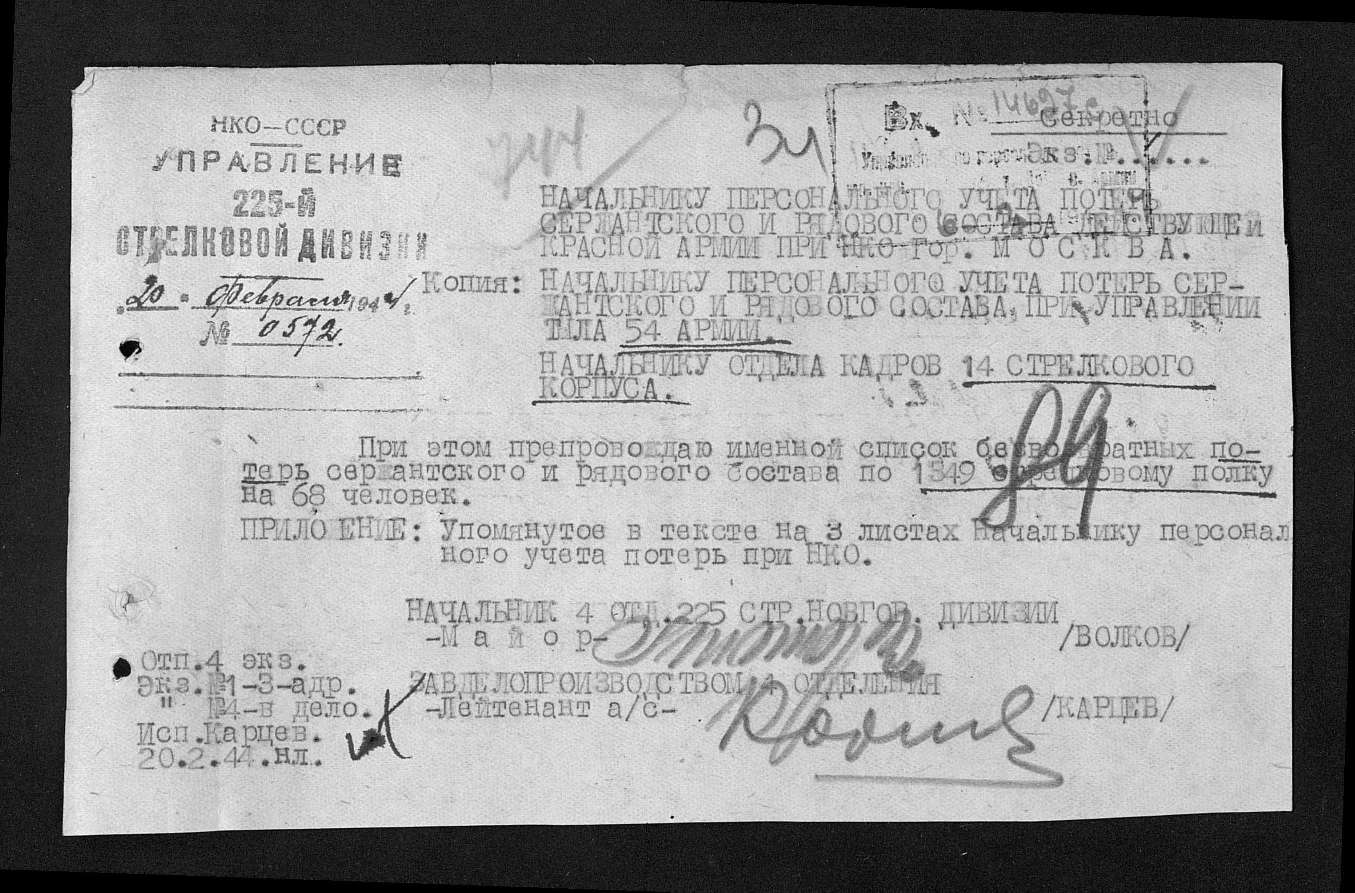 НКО—СССР
УПРАВЛЕНИЕ
225-й
СТРЕЛКОВОЙ ДИВИЗИИ
"20" февраля 1944 г.
№ 0572.
744
34
Вх. №14627с
Секретно
Экз.№......
НАЧАЛЬНИКУ ПЕРСОНАЛЬНОГО УЧЕТА ПОТЕРЬ
СЕРЖАНТСКОГО И РЯДОВОГО СОСТАВА ДЕЙСТВУЮЩЕЙ
КРАСНОЙ АРМИИ ПРИ НКО гор. М О С К В А.
Копия: НАЧАЛЬНИКУ ПЕРСОНАЛЬНОГО УЧЕТА ПОТЕРЬ СЕР-
ЖАНТСКОГО И РЯДОВОГО СОСТАВА, ПРИ УПРАВЛЕНИИ
ТЫЛА 54 АРМИИ.
НАЧАЛЬНИКУ ОТДЕЛА КАДРОВ 14 СТРЕЛКОВОГО
КОРПУСА.
89
При этом препровождаю именной список безвозвратных по-
терь сержантского и рядового состава по 1349 стрелковому полку
на 68 человек.
ПРИЛО ЕНИЕ: Упомянутое в тексте на 3 листах Начальнику персонал
ного учета потерь при НКО.
НАЧАЛЬНИК 4 ОТД.225 СТР.НОВГОР. ДИВИЗИИ
-М а й о р- /ВОЛКОВ/
ЗАВДЕЛОПРОИЗВОДСТВОМ 4 ОТДЕЛЕНИЯ
-Лейтенант а/с- /КАРЦЕВ/
Отп.4 экз.
Экз.№1-3-адр.
" №4-в дело.
Исп.Карцев.
20.2.44.нл.